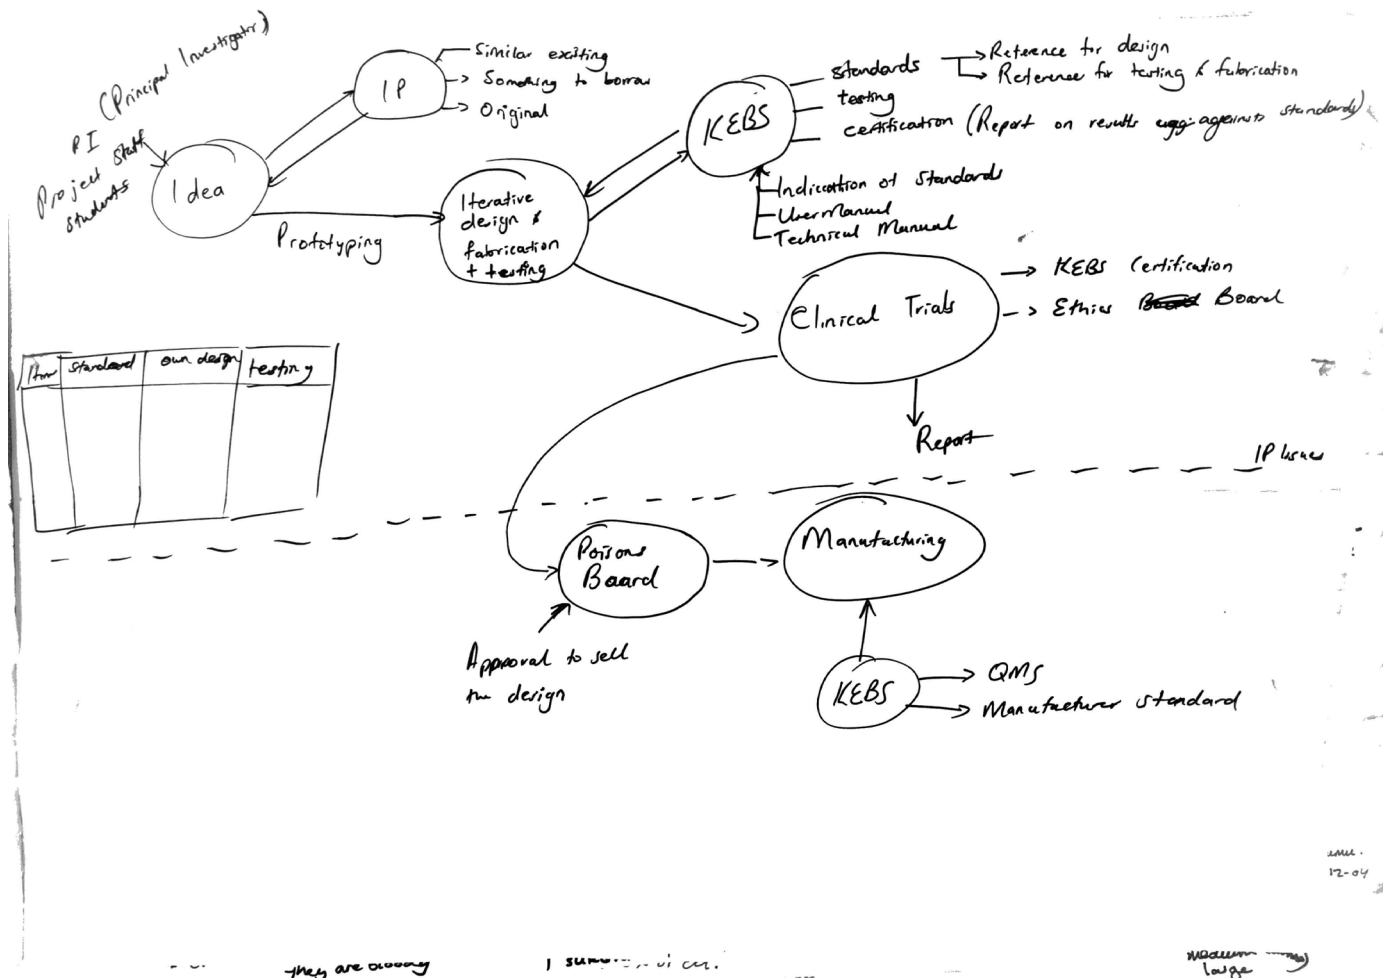 PI (Principal Investigator)
Project Staff
Students
Idea
IP
Similar existing
Something to borrow
Original
Prototyping
Iterative
design &
fabrication
+ testing
KEBS
standards
Reference for design
Reference for testing & fabrication
testing
certification (Report on results against standards)
Indication of Standards
User Manual
Technical Manual
Clinical Trials
KEBS Certification
Ethics Board
Report
Item
Standard
own design
testing
IP Issues
Poisons
Board
Manufacturing
Approval to sell
the design
KEBS
QMS
Manufacturer standard
12-04
They are
medium
large